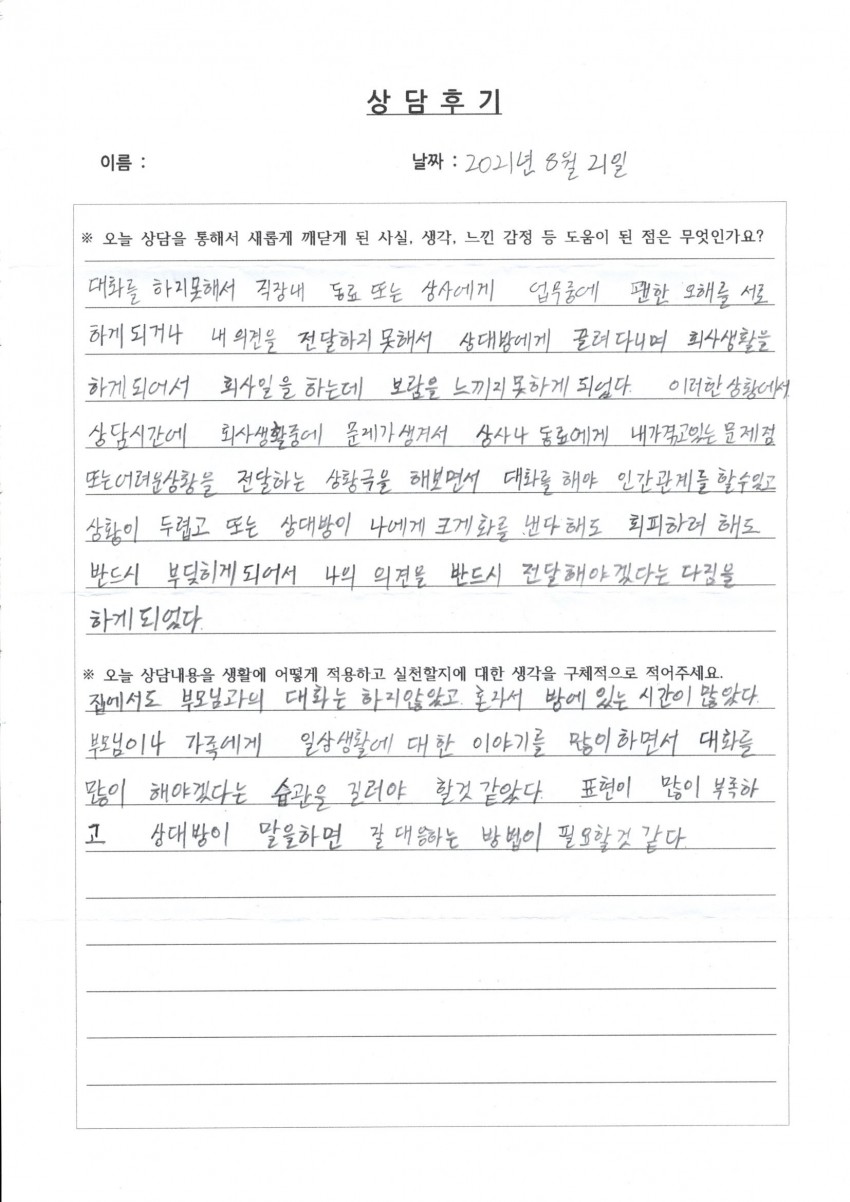 상 담 후 기
이름 :
날짜 : 2021년 8월 21일
※ 오늘 상담을 통해서 새롭게 깨닫게 된 사실, 생각, 느낀 감정 등 도움이 된 점은 무엇인가요?
대화를 하지못해서 직장내 동료 또는 상사에게 업무중에 팬한 오해를 서로
하게 되거나 내 의견을 전달하지 못해서 상대방에게 끌려 다니며 회사생활을
하게 되어서 회사일을 하는데 보람을 느끼지 못하게 되었다. 이러한 상황에서
상담시간에 회사생활중에 문제가 생겨서 상사나 동료에게 내가 겪고있는 문제점
또는 어려운상황을 전달하는 상황극을 해보면서 대화를 해야 인간관계를 할수있고
상황이 두렵고 또는 상대방이 나에게 크게 화를 낸다 해도 회피하려 해도
반드시 부딪히게 되어서 나의 의견을 반드시 전달해야겠다는 다짐을
하게 되었다.
※ 오늘 상담내용을 생활에 어떻게 적용하고 실천할지에 대한 생각을 구체적으로 적어주세요.
집에서도 부모님과의 대화는 하지않았고 혼자서 방에 있는 시간이 많았다.
부모님이나 가족에게 일상생활에 대한 이야기를 많이 하면서 대화를
많이 해야겠다는 습관을 길러야 할것 같았다. 표현이 많이 부족하
고 상대방이 말을하면 잘 대응하는 방법이 필요할것 같다.